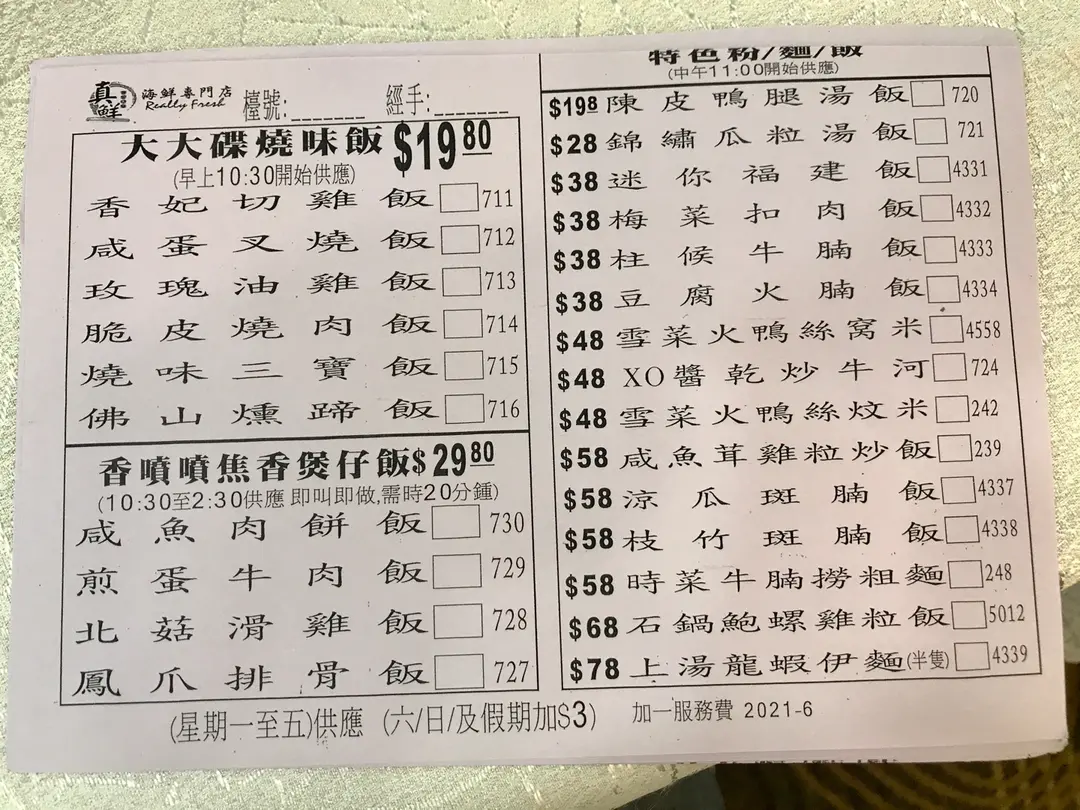 真鮮
海鮮專門店
Really Fresh
檯號:_______ 經手:_______
大大碟燒味飯 $19.80
(早上10:30開始供應)
香妃切雞飯 711
咸蛋叉燒飯 712
玫瑰油雞飯 713
脆皮燒肉飯 714
燒味三寶飯 715
佛山燻蹄飯 716
香噴噴焦香煲仔飯$29.80
(10:30至2:30供應 即叫即做,需時20分鍾)
咸魚肉餅飯 730
煎蛋牛肉飯 729
北菇滑雞飯 728
鳳爪排骨飯 727
特色粉/麵/飯
(中午11:00開始供應)
$19.8 陳皮鴨腿湯飯 720
$28 錦繡瓜粒湯飯 721
$38 迷你福建飯 4331
$38 梅菜扣肉飯 4332
$38 柱候牛腩飯 4333
$38 豆腐火腩飯 4334
$48 雪菜火鴨絲窩米 4558
$48 XO醬乾炒牛河 724
$48 雪菜火鴨絲炆米 242
$58 咸魚茸雞粒炒飯 239
$58 涼瓜斑腩飯 4337
$58 枝竹斑腩飯 4338
$58 時菜牛腩撈粗麵 248
$68 石鍋鮑螺雞粒飯 5012
$78 上湯龍蝦伊麵(半隻) 4339
(星期一至五)供應 (六/日/及假期加$3) 加一服務費 2021-6